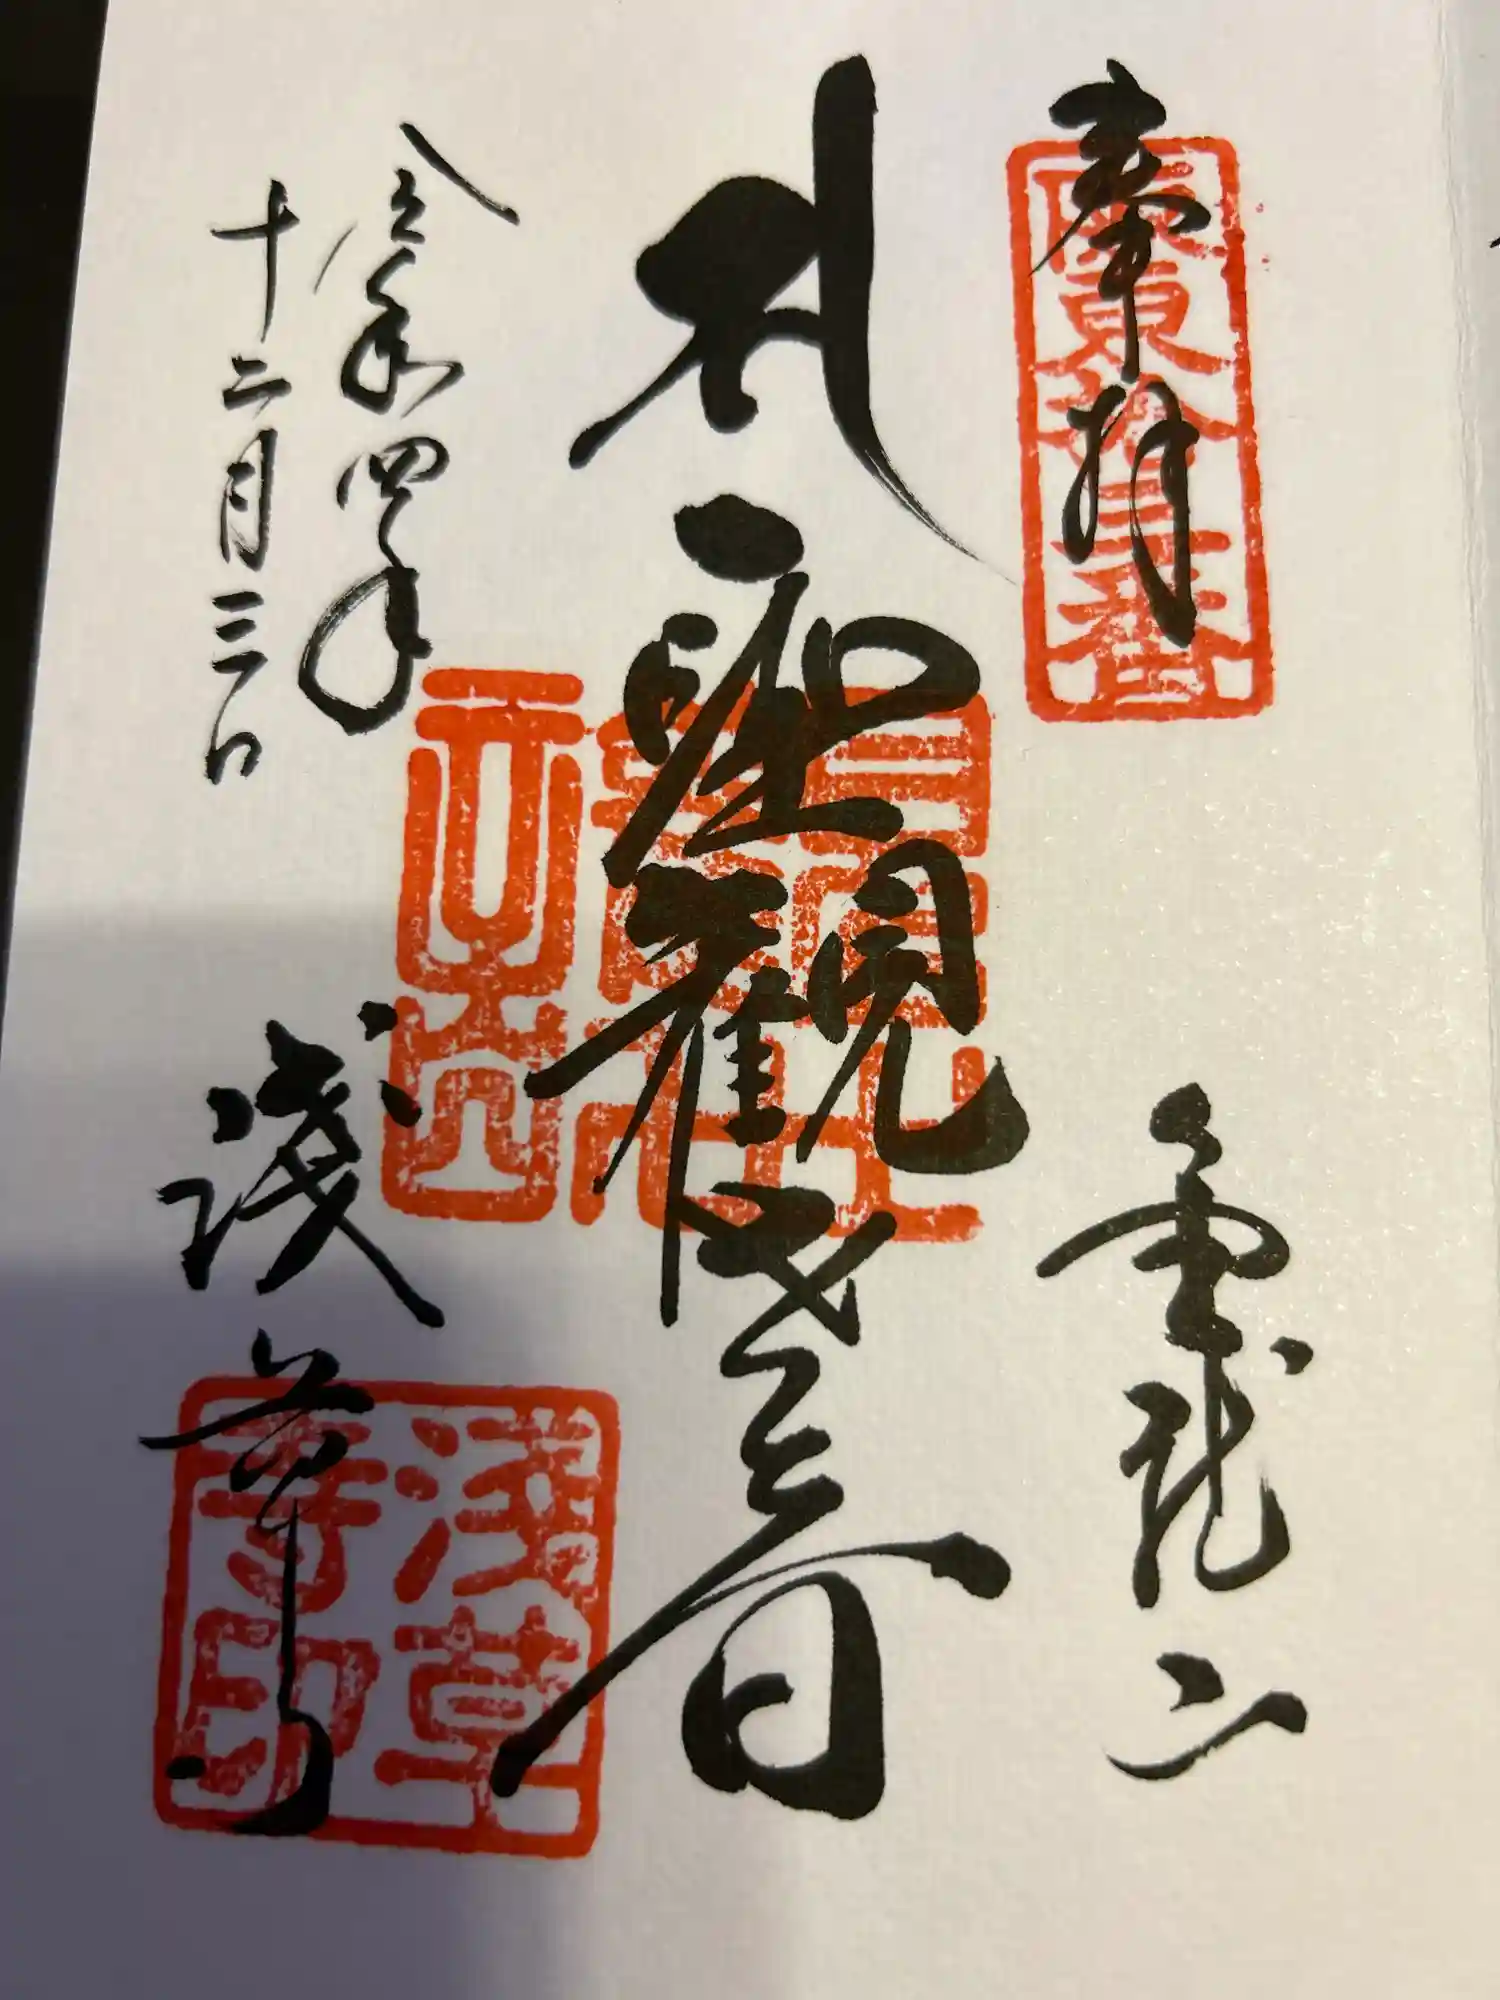 奉拝
坂東拾三番
金龍山
聖観世音
令和四年
十二月三日
浅草寺
浅草寺印